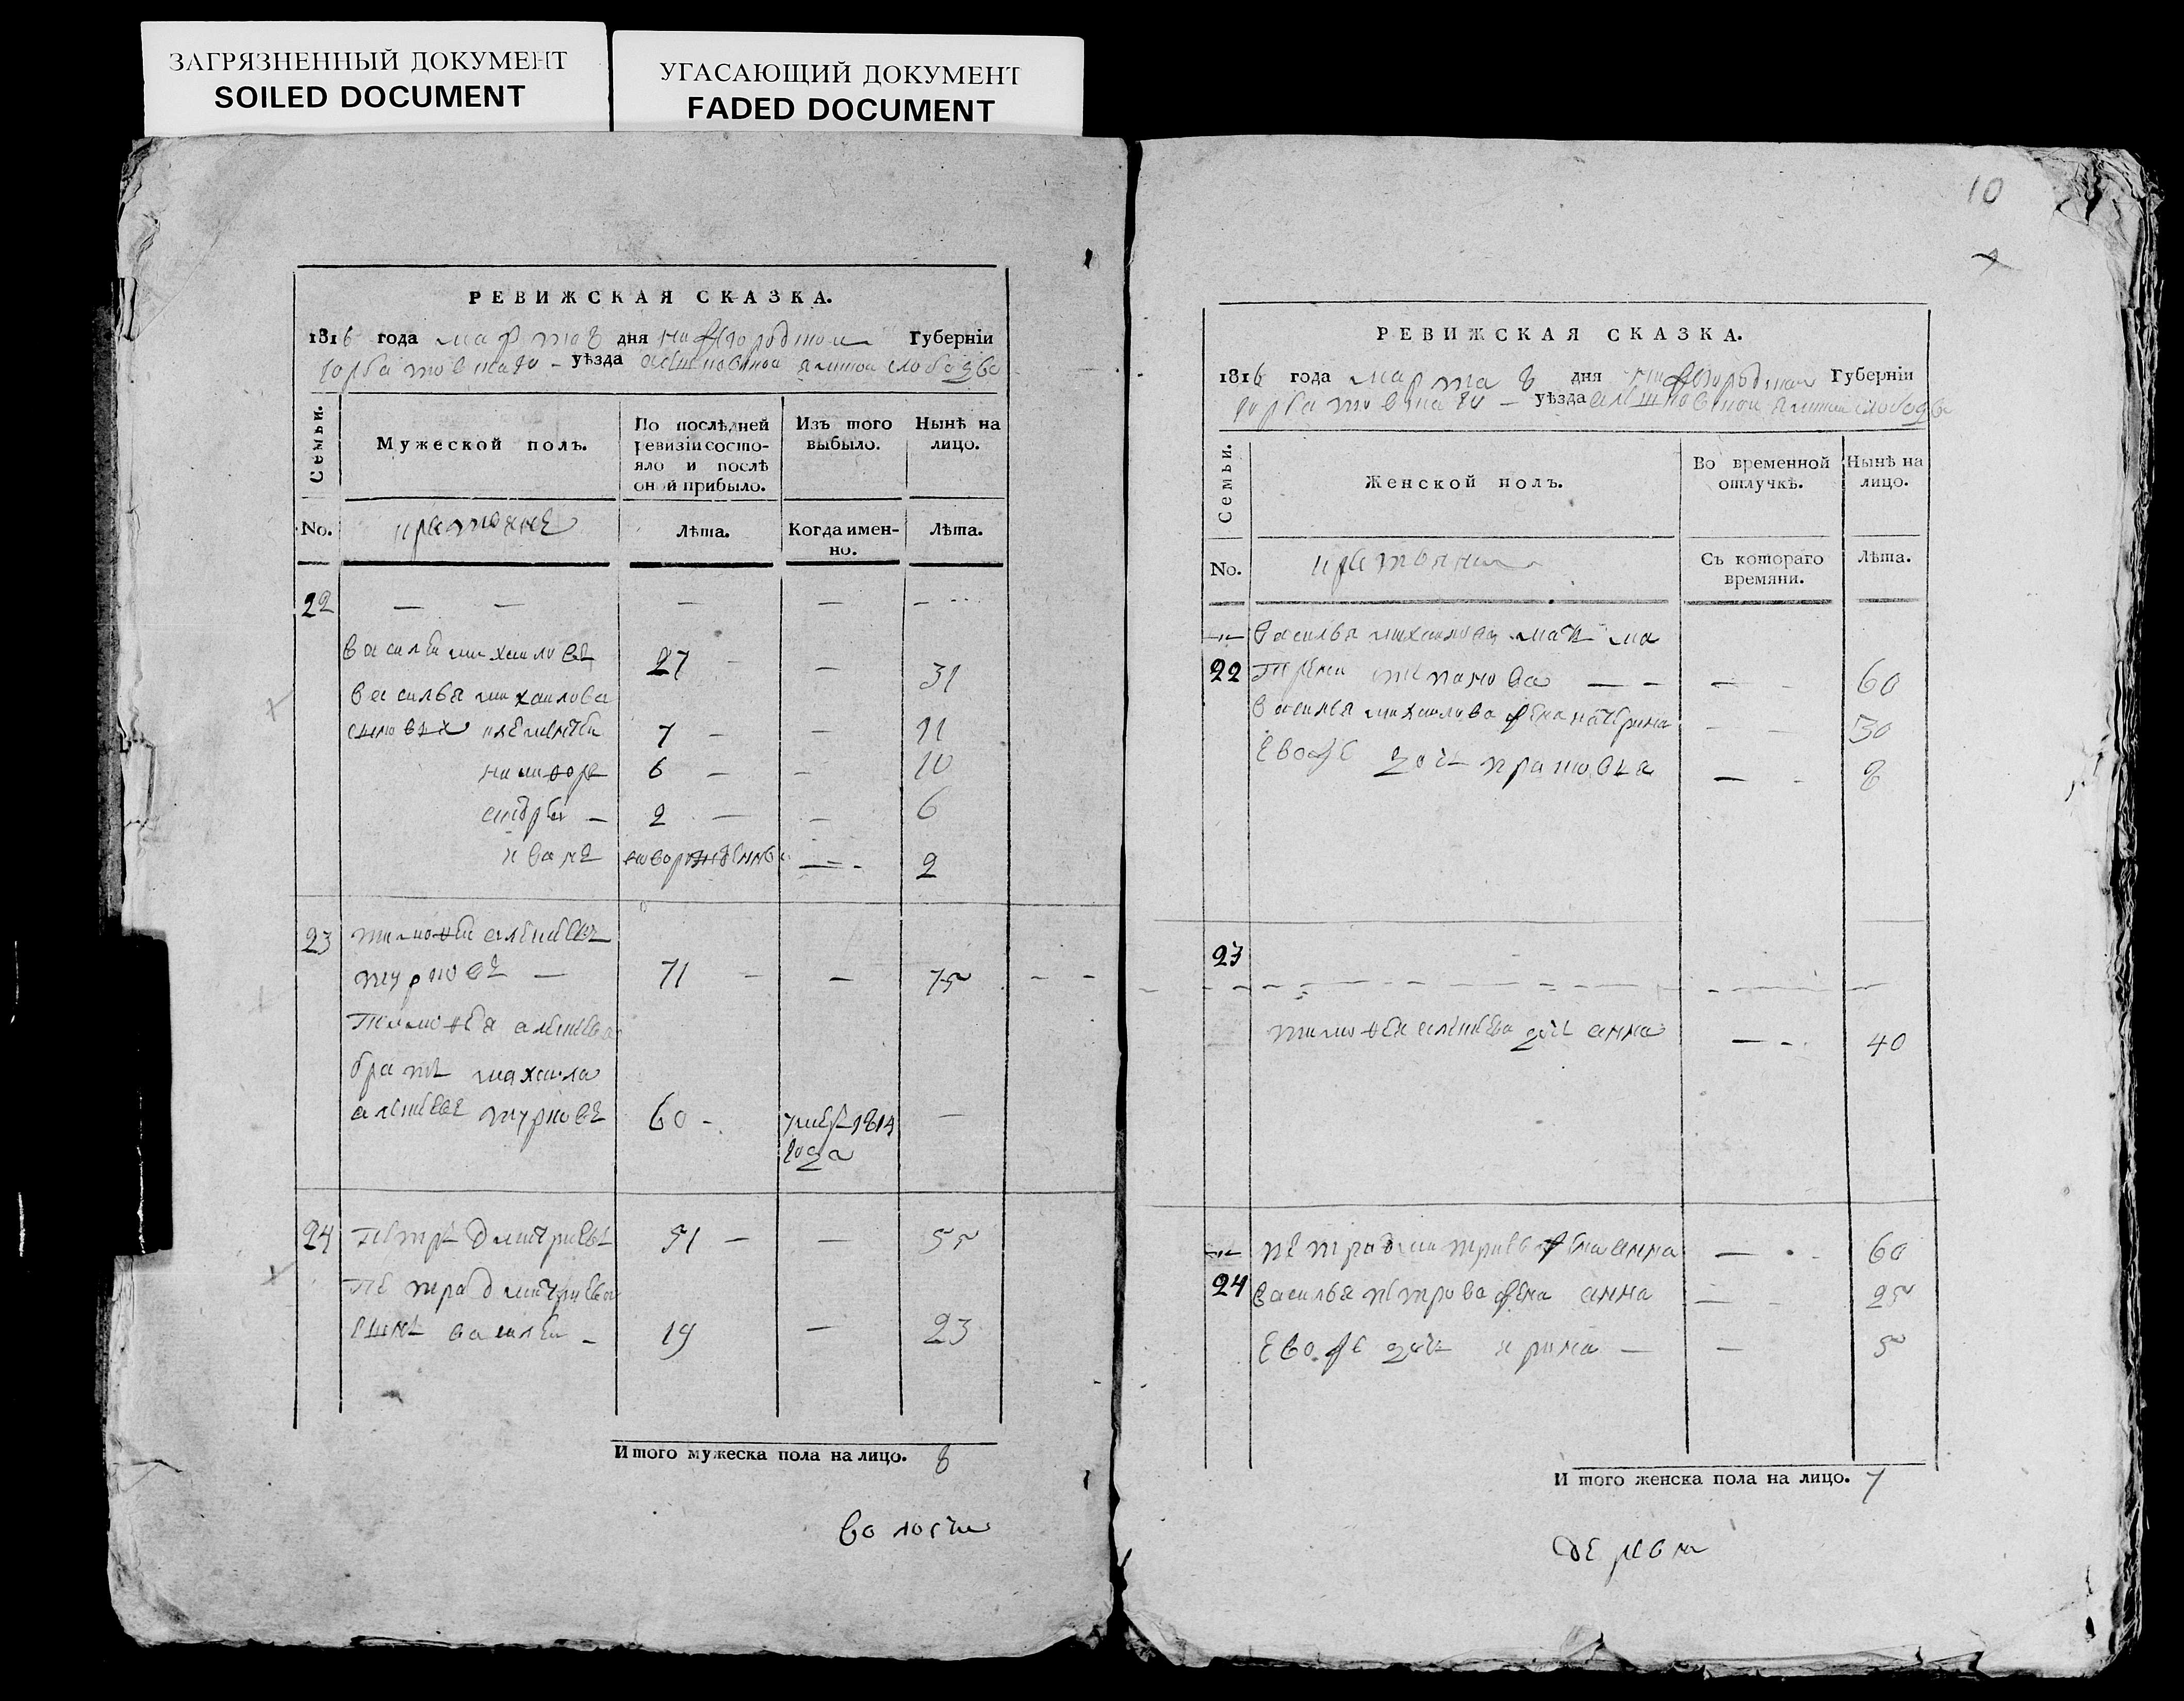 ЗАГРЯЗНЕННЫЙ ДОКУМЕНТ
SOILED DOCUMENT
УГАСАЮЩИЙ ДОКУМЕНТ
FADED DOCUMENT
РЕВИЖСКАЯ СКАЗКА.
1816 года марта 8 дня нижегородской Губерніи
горбатовскаго – уѣзда ямской слободы
Семьи.
Мужеской полъ.
По послѣдней ревизіи состо-
яло и послѣ
оной прибыло.
Изъ того
выбыло.
Нынѣ на
лицо.
No.
крестьяне
Лѣта.
Когда имен-
но.
Лѣта.
22 — — — — —
василей михаиловъ 27 — — 31
василья михаилова
сыновья клементей 7 — — 11
никифоръ 6 — — 10
сидоръ — 2 — — 6
иванъ новорожденной — 2
23 тимофей алексеевъ
турковъ — 71 — — 75
Тимофея алексеева
братъ михаила
алексеевъ турковъ 60 — умеръ 1814 —
года
24 Петръ дмитриевъ 51 — — 55
Петра дмитриева
сынъ василей — 19 — 23
Итого мужеска пола на лицо. 8
волости
10
РЕВИЖСКАЯ СКАЗКА.
1816 года марта 8 дня нижегородской Губерніи
горбатовскаго – уѣзда ямской слободы
Семьи.
Женской полъ.
Во временной
отлучкѣ.
Нынѣ на
лицо.
No.
крестьянки
Съ котораго
времяни.
Лѣта.
василья михаилова мать
22 степанова — — — 60
василья михаилова жена катерина — — 30
Евоже дочь прасковья — — 8
23
тимофея алексеева дочь анна — — 40
петра дмитриева жена анна — — 60
24 василья петрова жена анна — — 25
Евоже дочь ирина — — 5
И того женска пола на лицо. 7
деревня